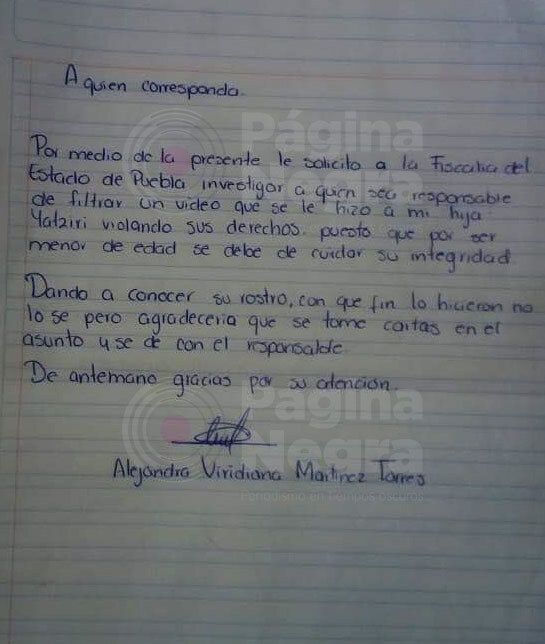 A quien corresponda.
Por medio de la presente le solicito a la Fiscalia del
Estado de Puebla investigar a quien sea responsable
de filtrar un video que se le hizo a mi hija
Yatziri violando sus derechos. puesto que por ser
menor de edad se debe de cuidar su integridad
Dando a conocer su rostro, con que fin lo hicieron no
lo se pero agradeceria que se tome cartas en el
asunto y se de con el responsable.
De antemano gracias por su atencion.
Alejandra Viridiana Martinez Torres
Página
Negra
Página
Negra
Periodismo en tiempos oscuros